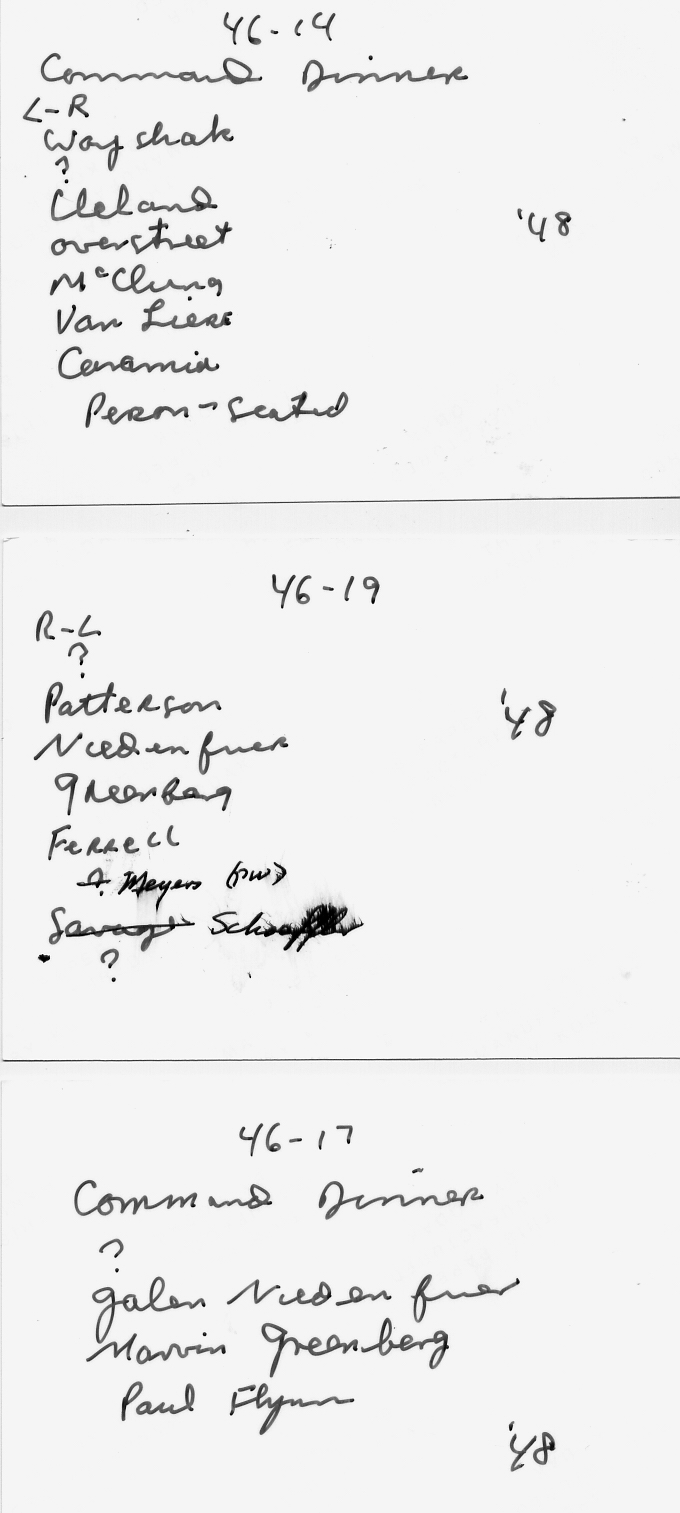 46-14
Command Dinner
L-R
Wayshak
?
Cleland
'48
Overstreet
McClung
Van Liere
Caramia
Person-Seated
46-19
R-L
?
Patterson
'48
Niedenfuer
Greenberg
Ferrell
Meyers (PW)
Savage
?
46-17
Command Dinner
?
Galen Niedenfuer
Marvin Greenberg
Paul Flynn
'48